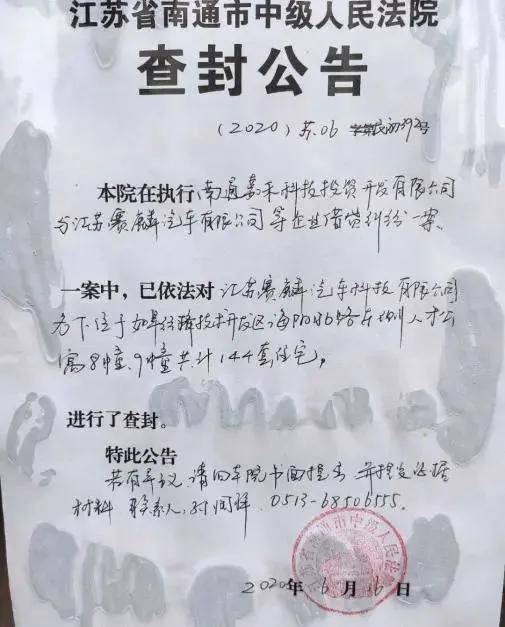 江苏省南通市中级人民法院
查封公告
(2020) 苏06 民初392号
本院在执行 南通嘉禾科技投资开发有限公司
与江苏赛麟汽车有限公司等企业借贷纠纷一案
一案中，已依法对 江苏赛麟汽车科技有限公司
名下位于如皋经济技术开发区海阳北路东侧人才公
寓8幢、9幢共计144套住宅，
进行了查封。
特此公告
若有异议 请向本院书面提出 并提交证据
材料 联系人 0513-68506555.
2020年6月16日
江苏省南通市中级人民法院